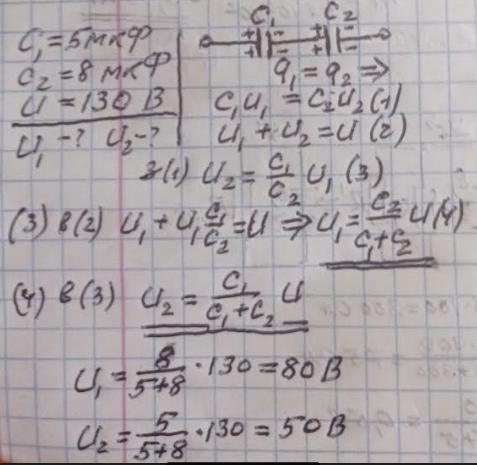 C₁ = 5 мкФ
C₂ = 8 мкФ
U = 130 В
U₁ - ? U₂ - ?
C₁ C₂
+ - + -
+ - + -
q₁ = q₂ ⇒
C₁U₁ = C₂U₂ (1)
U₁ + U₂ = U (2)
з (1) U₂ = C₁/C₂ U₁ (3)
(3) в (2) U₁ + U₁ C₁/C₂ = U ⇒ U₁ = C₂/(C₁+C₂) U (4)
(4) в (3) U₂ = C₁/(C₁+C₂) U
U₁ = 8/(5+8) · 130 = 80 В
U₂ = 5/(5+8) · 130 = 50 В